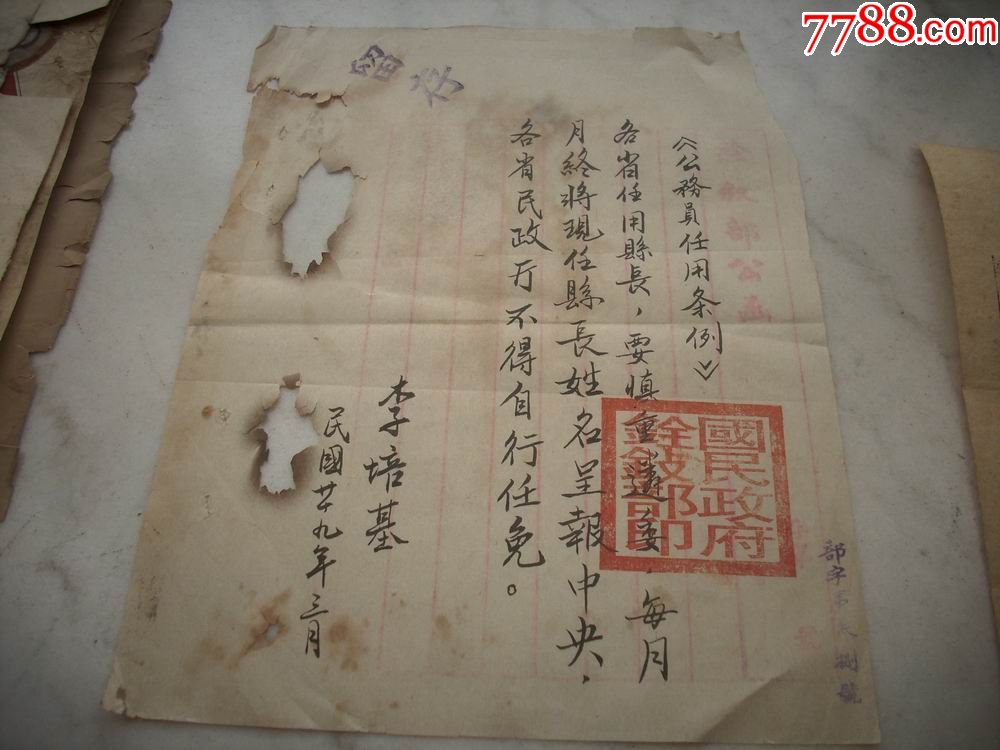 7788.com
留存
銓敘部公函
《公務員任用条例》
各省任用縣長，要慎重遴委．每月
月終將現任縣長姓名呈報中央、
各省民政厅不得自行任免。
李培基
民國廿九年三月
國民政府
銓敍部印
部字第 捌號